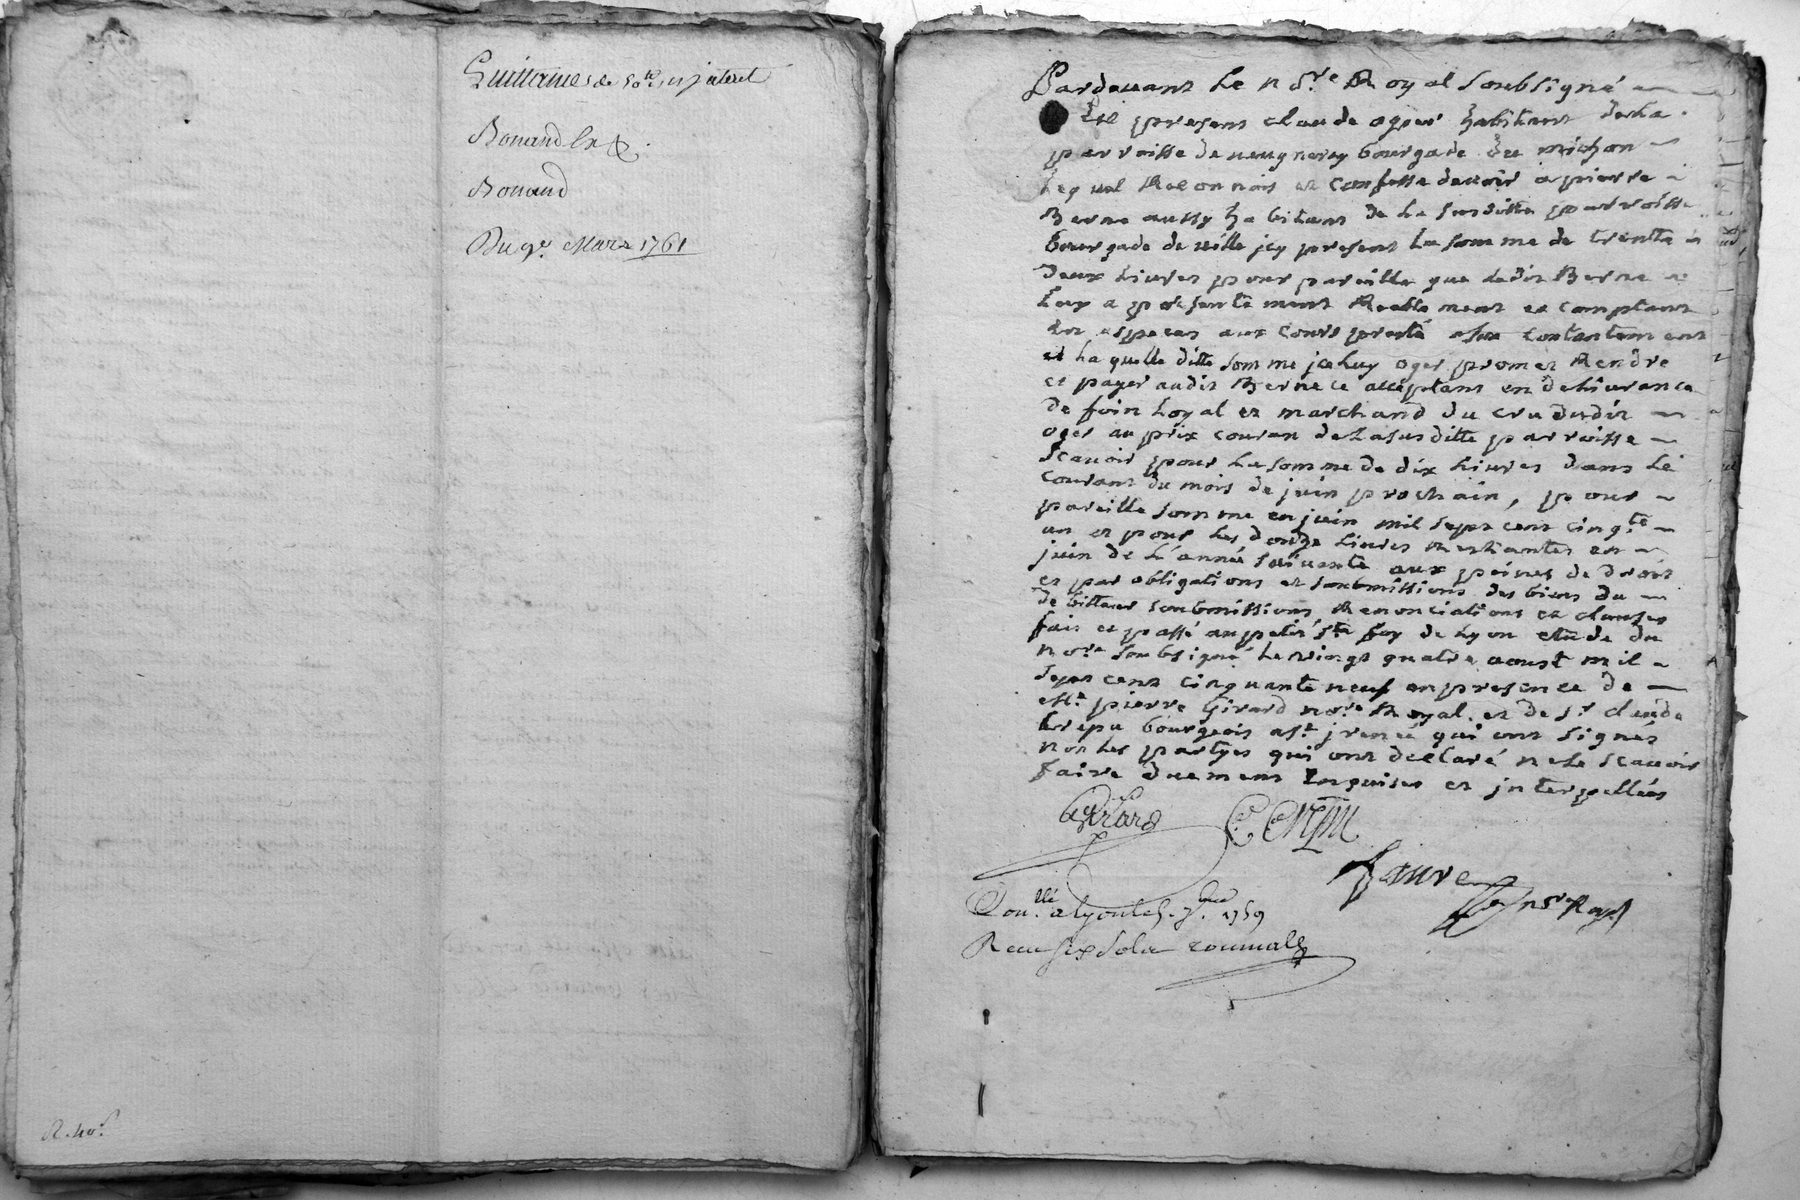 Bouand
Du 9e Mars 1761
Pardevant Le nore Royal soubsigné
Est present claude oger habitant de la
parroisse de bourgade du michon
Lequel Reconnois et confesse devoir a pierre
Berne aussy habitant de La susditte parroisse
bourgade de ville jcy present La somme de trente
deux Livres pour pareille que ledit Berne
Luy a presentement Reellement et comptant
En especes aux cours presté a son contantement
La quelle ditte somme jceluy oger promet Rendre
et payer audit Berne ce acceptant en delivrance
de foin Loyal et marchand du cru dudit
oger au prix couran de La susditte parroisse
scavoir pour La somme de dix Livres dans Le
courant du mois de juin prochain, pour
pareille somme en juin mil sept cent cinqte
un et pour Les douze Livres Restantes en
juin de L'année suivante aux peines de droit
et par obligations et soubmissions des biens du
debitteur soubmissions Renonciations et clauses
fait et passé au petit Ste foy de Lyon etude du
nore soubsigné Le vingt quatre aoust mil
sept cent cinquante neuf en presence de
Me pierre Girard nore Royal et de sr claude
bourgeois jrenée qui ont signés
non Les partyes qui ont declaré ne Le scavoir
faire duement Enquises et jnterpellées
Girard
faure
nore Royal
a Lyon le 7bre 1759
Recu six sols
R. 40s